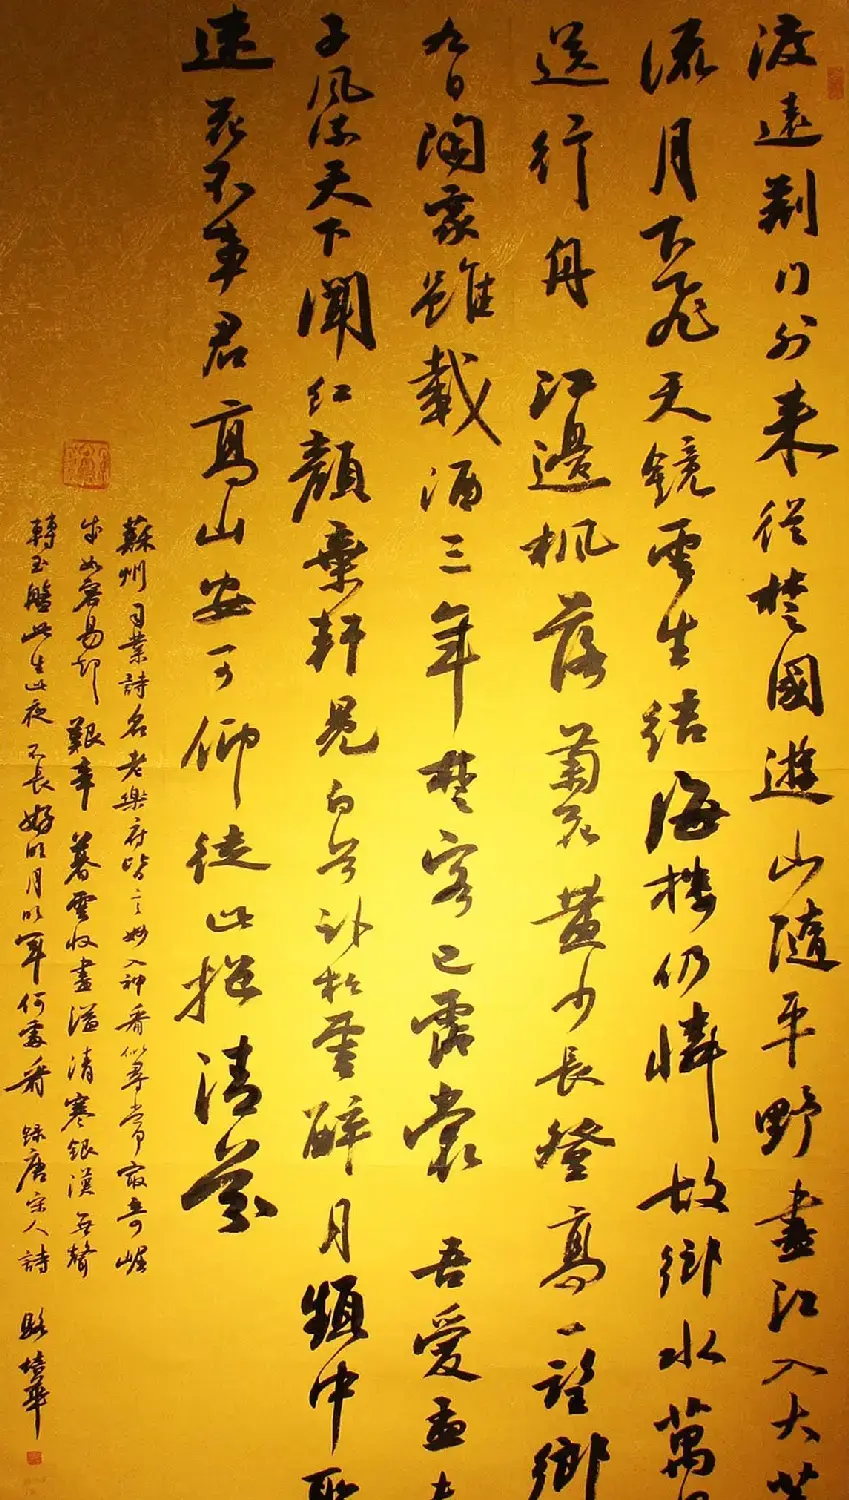 渡遠荆门外来從楚國遊山隨平野盡江入大荒
流月下飛天鏡雲生結海樓仍憐故鄉水萬里
送行舟 江邊楓落菊花黄少長登高一望鄉
九日陶家雖載酒三年楚客已霑裳 吾愛孟夫
子風流天下聞紅顔棄軒冕白首卧松雲醉月頻中聖
迷花不事君高山安可仰徒此挹清芬
蘇州司業詩名老樂府皆言妙入神看似尋常最奇崛
成如容易却艱辛 暮雲收盡溢清寒銀漢無聲
轉玉盤此生此夜不長好明月明年何處看 録唐宋人詩 培華